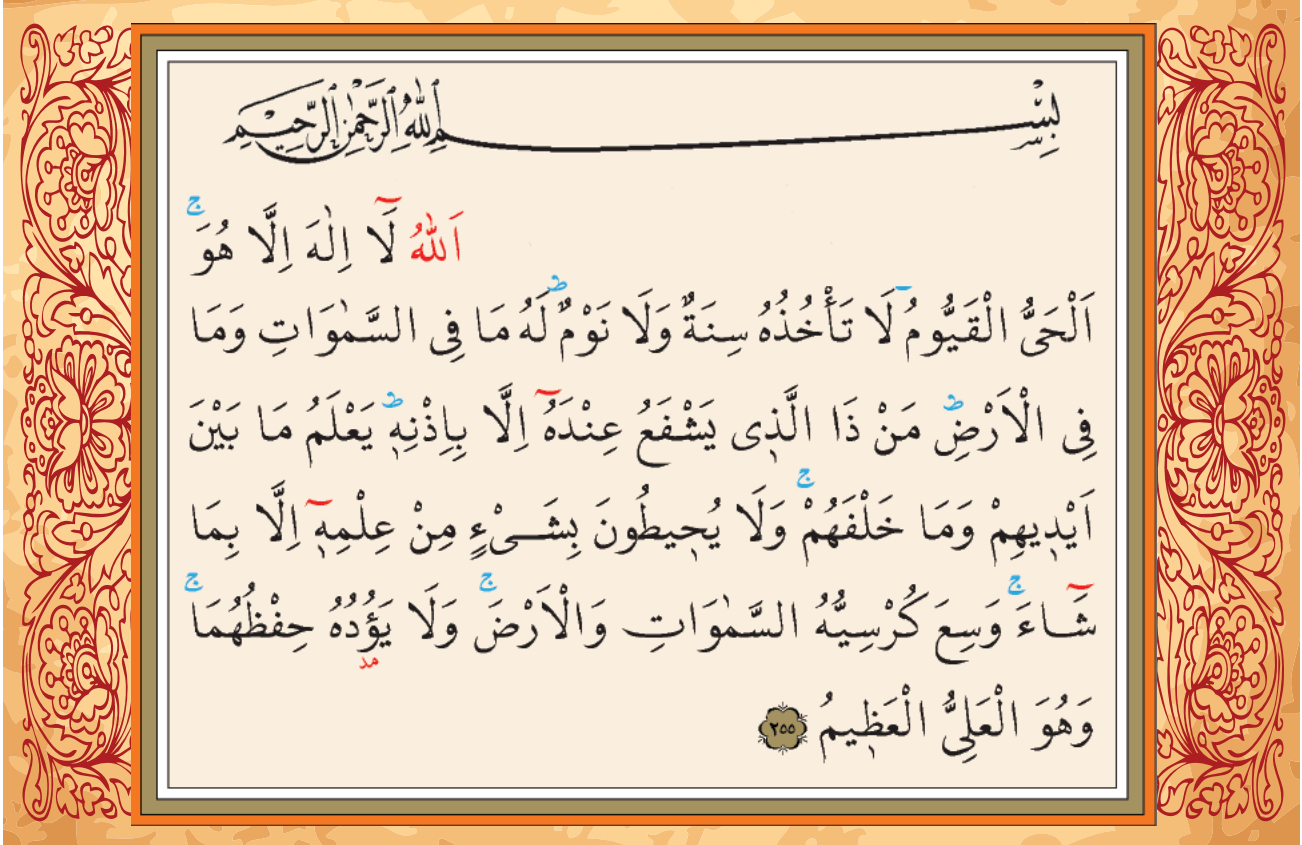 بِسْمِ اللّٰهِ الرَّحْمٰنِ الرَّحِيمِ
اَللّٰهُ لَٓا اِلٰهَ اِلَّا هُوَۚ
اَلْحَىُّ الْقَيُّومُ لَا تَأْخُذُهُ سِنَةٌ وَلَا نَوْمٌۜ لَهُ مَا فِى السَّمٰوَاتِ وَمَا
فِى الْاَرْضِۜ مَنْ ذَا الَّذٖى يَشْفَعُ عِنْدَهُٓ اِلَّا بِاِذْنِهٖۜ يَعْلَمُ مَا بَيْنَ
اَيْدٖيهِمْ وَمَا خَلْفَهُمْۚ وَلَا يُحٖيطُونَ بِشَىْءٍ مِنْ عِلْمِهٖٓ اِلَّا بِمَا
شَٓاءَۚ وَسِعَ كُرْسِيُّهُ السَّمٰوَاتِ وَالْاَرْضَۚ وَلَا يَؤُدُهُ حِفْظُهُمَاۚ
مد
وَهُوَ الْعَلِىُّ الْعَظٖيمُ ٢٥٥